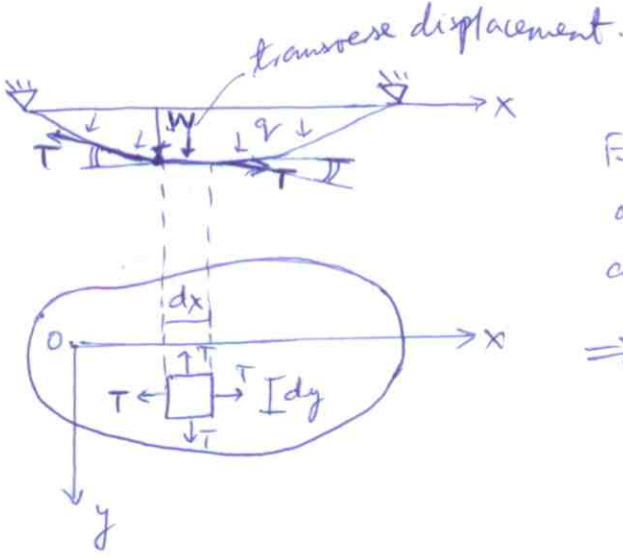 transvese displacement.
W
q
x
T
T
dx
O
x
T
T
T
T
dy
y